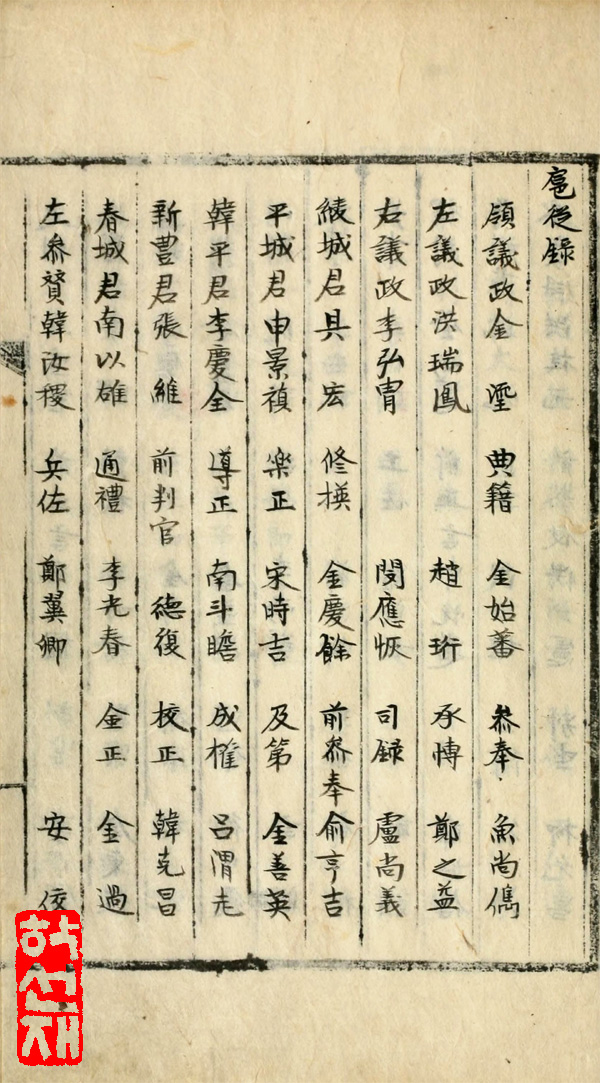 扈従録
領議政金瑬 典籍 金始蕃 叅奉 魚尚儁
左議政洪瑞鳳 趙珩 承愽 鄭之益
右議政李弘冑 閔應恢 司録 盧尚義
綾城君具宏 修撰 金慶餘 前叅奉 俞亨吉
平城君申景禛 楽正 宋時吉 及第 金善英
韓平君李慶全 導正 南斗瞻 成權 呂渭老
新豊君張維 前判官 德復 校正 韓克昌
春城君南以雄 通禮 李光春 金正 金過
左叅賛韓汝稷 兵佐 鄭翼卿 安佼
학선재